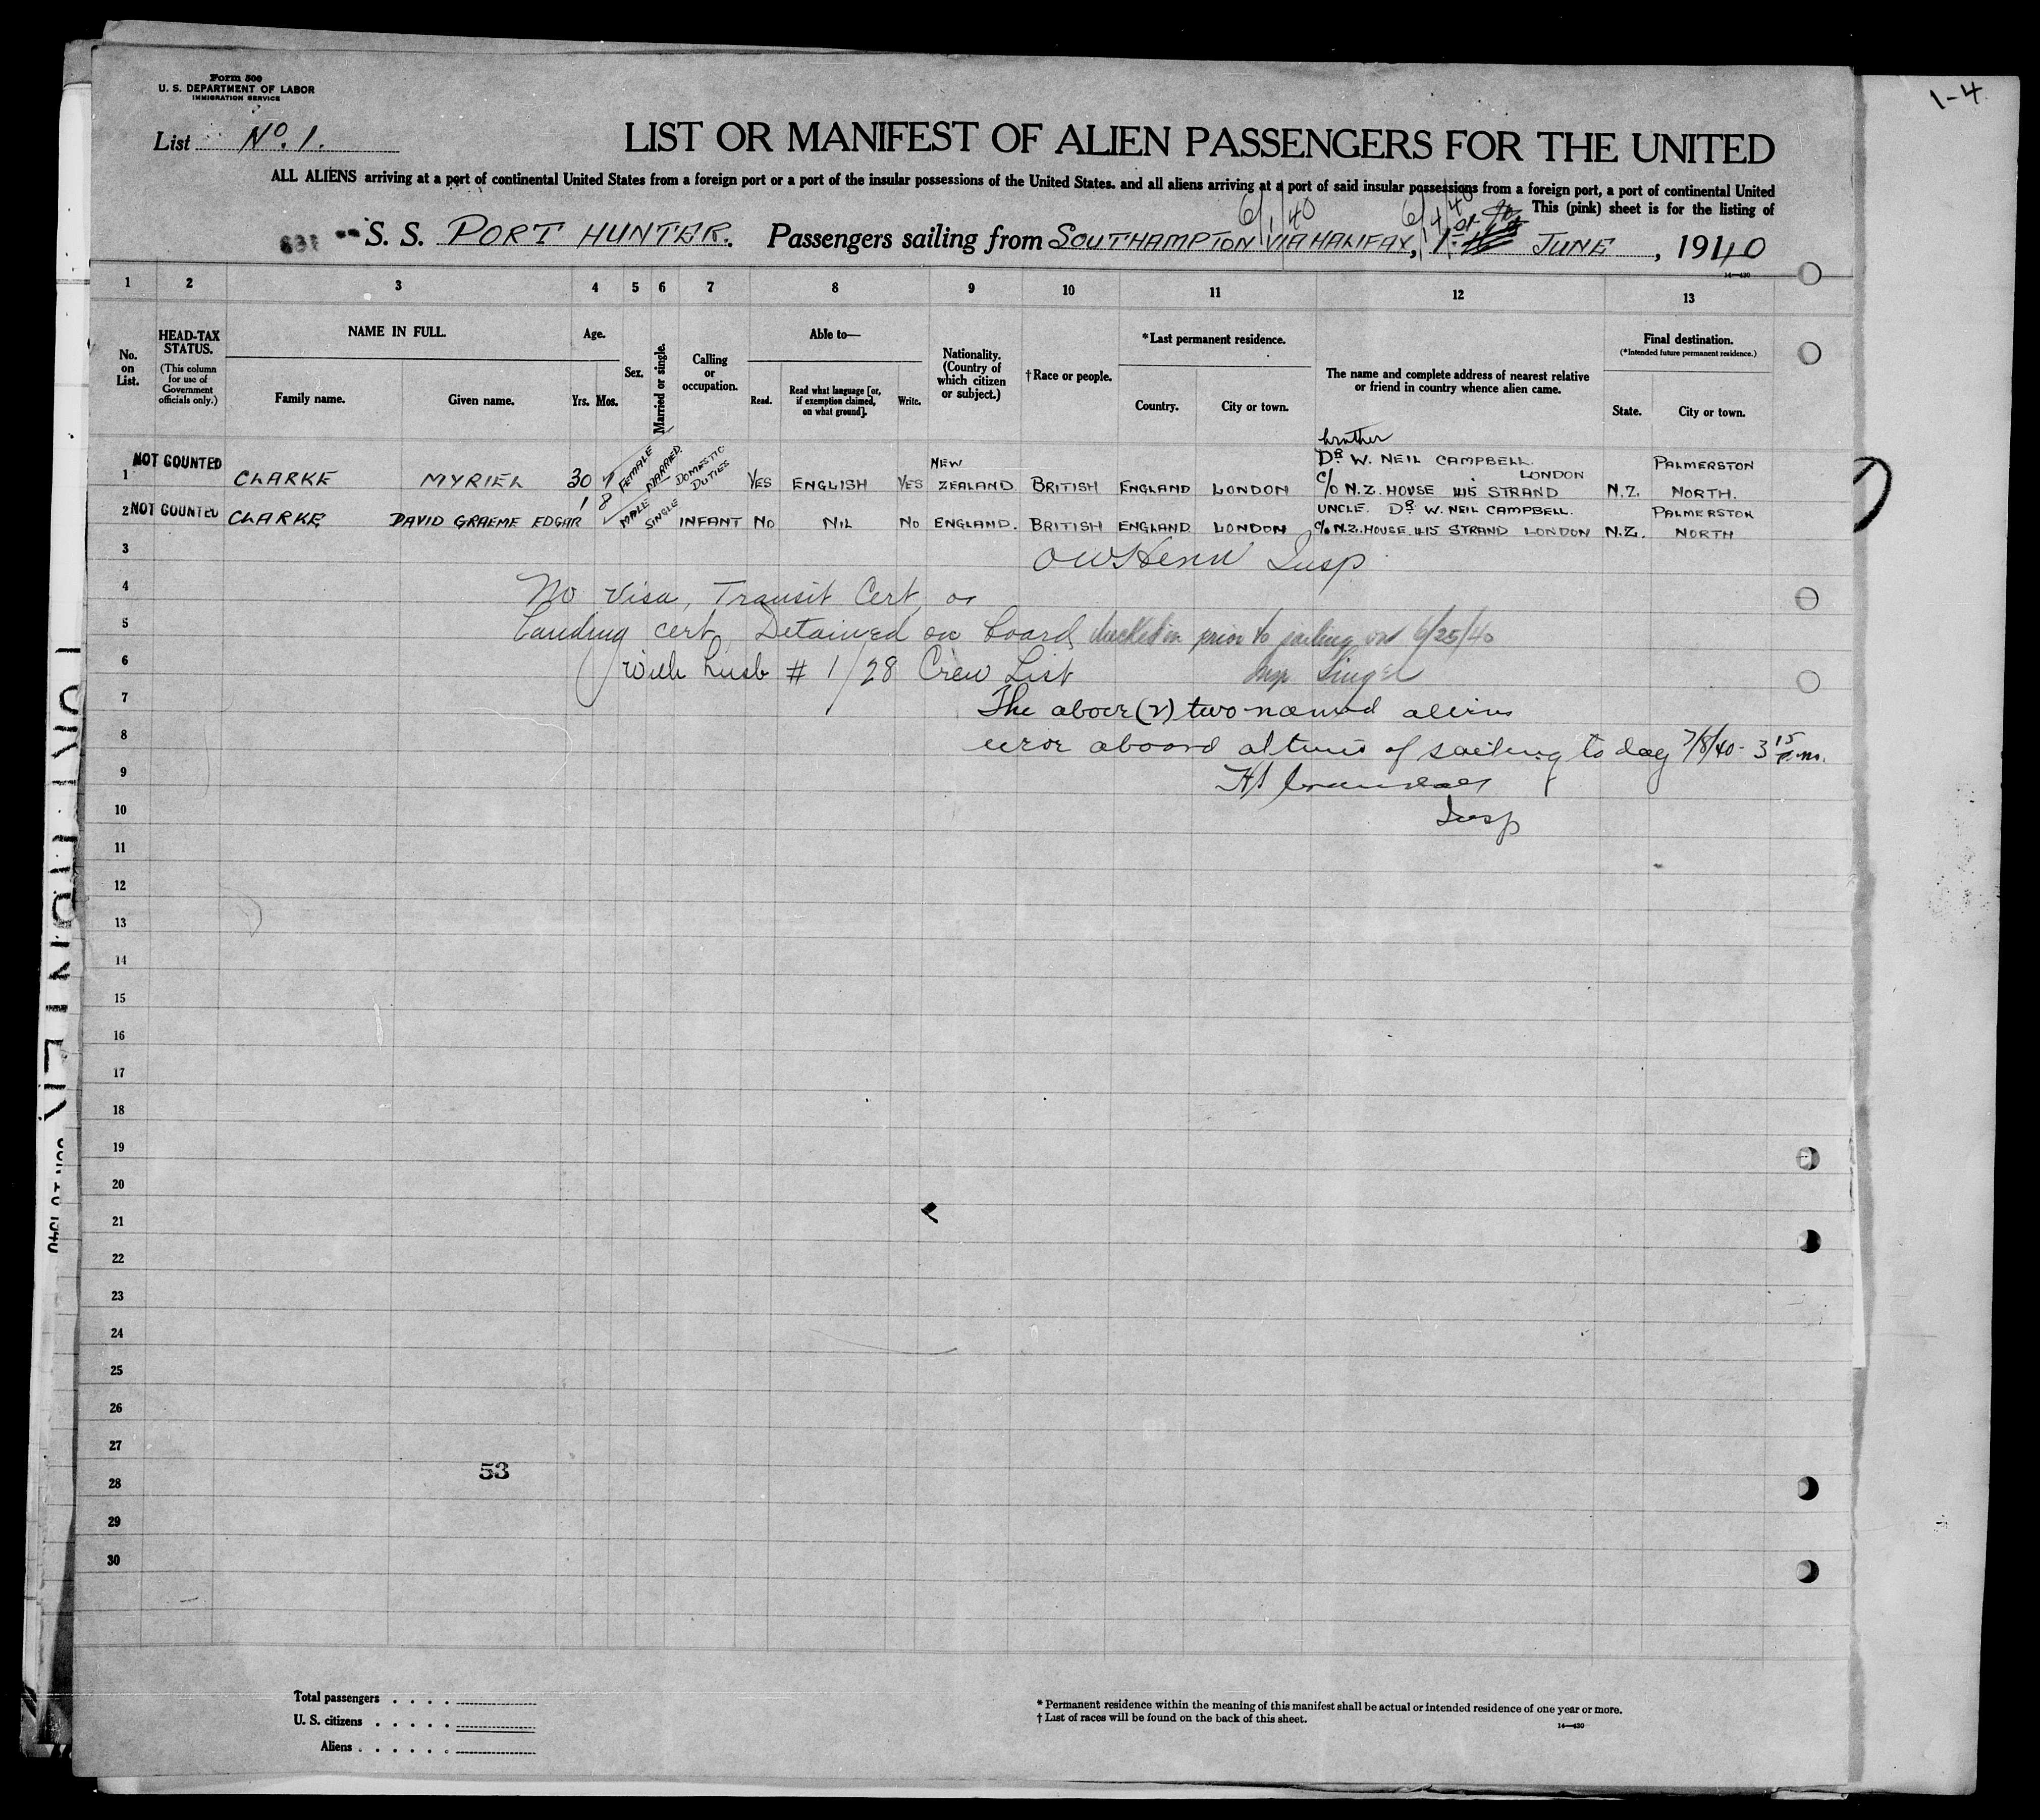 Form 500
U. S. DEPARTMENT OF LABOR
IMMIGRATION SERVICE
1-4
List No. 1.
LIST OR MANIFEST OF ALIEN PASSENGERS FOR THE UNITED
ALL ALIENS arriving at a port of continental United States from a foreign port or a port of the insular possessions of the United States, and all aliens arriving at a port of said insular possessions from a foreign port, a port of continental United
This (pink) sheet is for the listing of
6/1/40 6/4/40
S. S. PORT HUNTER. Passengers sailing from SOUTHAMPTON VIA HALIFAX, 1st JUNE, 1940
14—430
1 2 3 4 5 6 7 8 9 10 11 12 13
No. on List.
HEAD-TAX STATUS.
(This column for use of Government officials only.)
NAME IN FULL.
Family name. Given name.
Age.
Yrs. Mos.
Sex.
Married or single.
Calling or occupation.
Able to—
Read. Read what language [or, if exemption claimed, on what ground]. Write.
Nationality. (Country of which citizen or subject.)
†Race or people.
*Last permanent residence.
Country. City or town.
The name and complete address of nearest relative or friend in country whence alien came.
Final destination.
(*Intended future permanent residence.)
State. City or town.
1 NOT COUNTED CLARKE MYRIEL 30 7 FEMALE MARRIED. DOMESTIC DUTIES YES ENGLISH YES NEW ZEALAND BRITISH ENGLAND LONDON brother DR. W. NEIL CAMPBELL. C/O N.Z. HOUSE 415 STRAND LONDON N.Z. PALMERSTON NORTH.
2 NOT COUNTED CLARKE DAVID GRAEME EDGAR 1 8 MALE SINGLE INFANT NO NIL NO ENGLAND. BRITISH ENGLAND LONDON UNCLE. DR. W. NEIL CAMPBELL. C/o N.Z. HOUSE 415 STRAND LONDON N.Z. PALMERSTON NORTH
3
Insp
4 No Visa, Transit Cert, or
5 Landing cert, Detained on board checked in prior to sailing on 6/25/40
6 with husb # 1/28 Crew List Insp
7 The above (2) two named aliens
8 were aboard at time of sailing to day 7/8/40 - 3 15 P.m.
9
10 Insp
11
12
13
14
15
16
17
18
19
20
21
22
23
24
25
26
27
53
28
29
30
Total passengers . . . .
U. S. citizens . . . . .
Aliens . . . . . .
* Permanent residence within the meaning of this manifest shall be actual or intended residence of one year or more.
† List of races will be found on the back of this sheet.
14—430